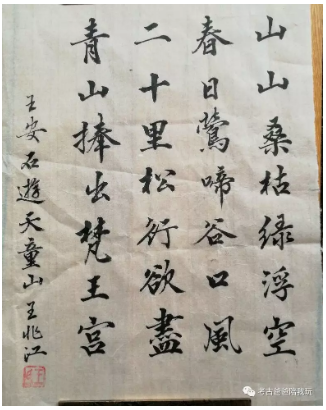 山山桑枯绿浮空
春日鶯啼谷口風
二十里松行欲盡
青山捧出梵王宫
王安石遊天童山 王兆江
考古爸爸陪我玩